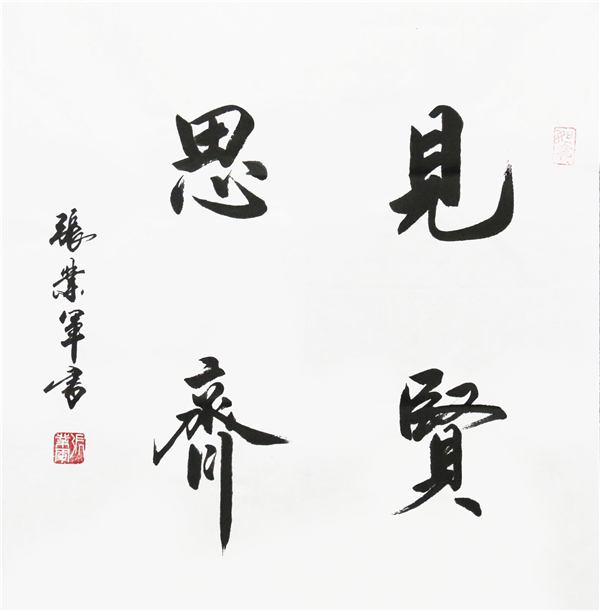 見賢
思齊
張業軍书